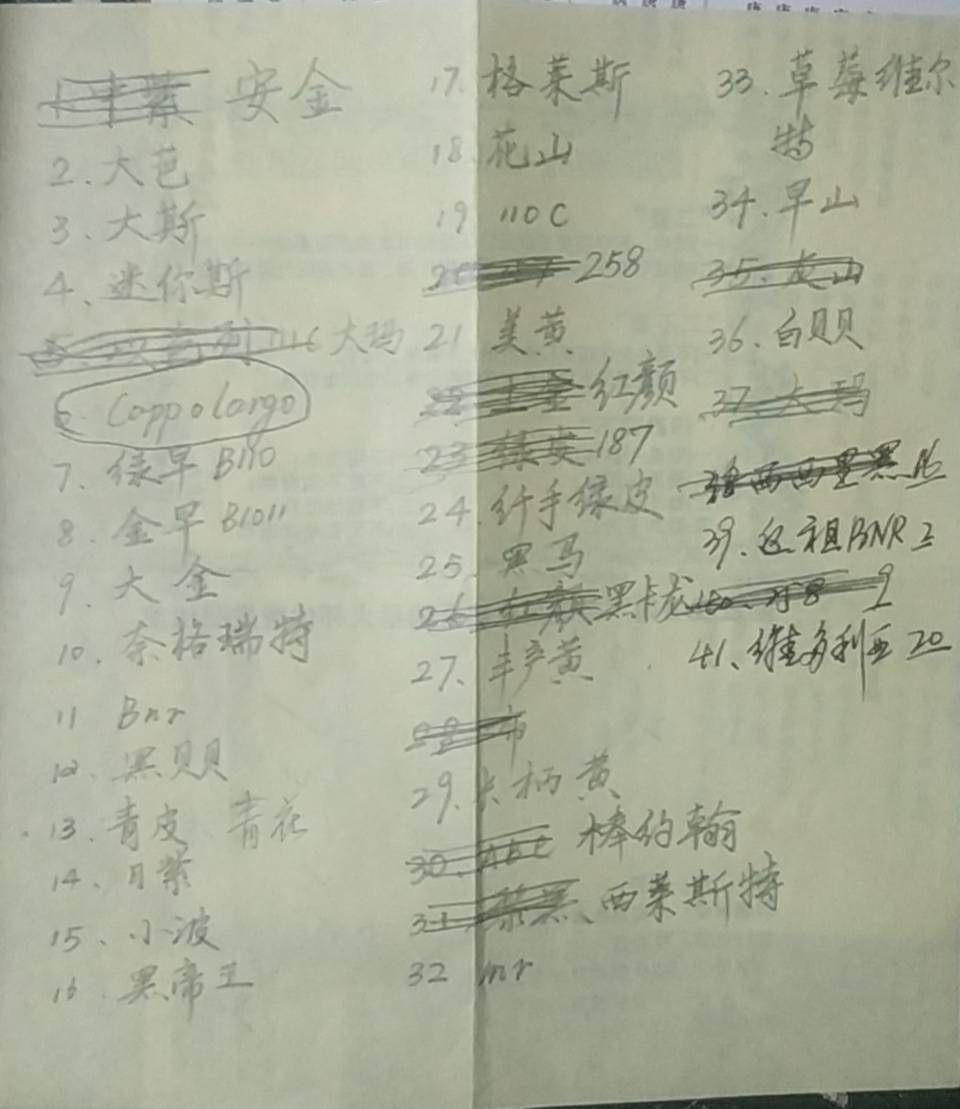 安金
2、大芭
3、大斯
4、迷你斯
大玛
6、Coppolargo
7、绿早 B110
8、金早 B1011
9、大金
10、奈格瑞特
11 Bnr
12、黑贝贝
13、青皮、青花
14、日紫
15、小波
16、黑帝王
17、格莱斯
18、花山
19 110C
258
21 美黄
红颜
187
24、纤手绿皮
25、黑马
黑卡龙
27、丰产黄
29、长柄黄
棒约翰
西莱斯特
32 mr
33、草莓维尔
特
34、早山
36、白贝贝
39、这祖BNR 三
9
41、维多利亚 20